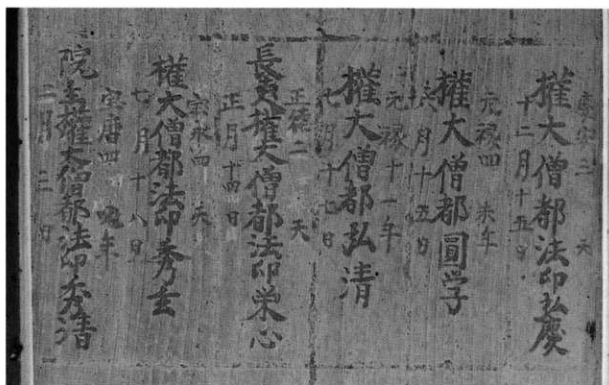 慶安三 天
權大僧都法印弘慶
十二月十五日
元禄四 未年
權大僧都圓学
月十五日
元禄十一年
權大僧都弘清
七月十七日
正徳二 天
權大僧都法印栄心
正月十四日
宝永四 天
權大僧都法印秀玄
七月十八日
宝暦四 年
權大僧都法印秀清
月二日